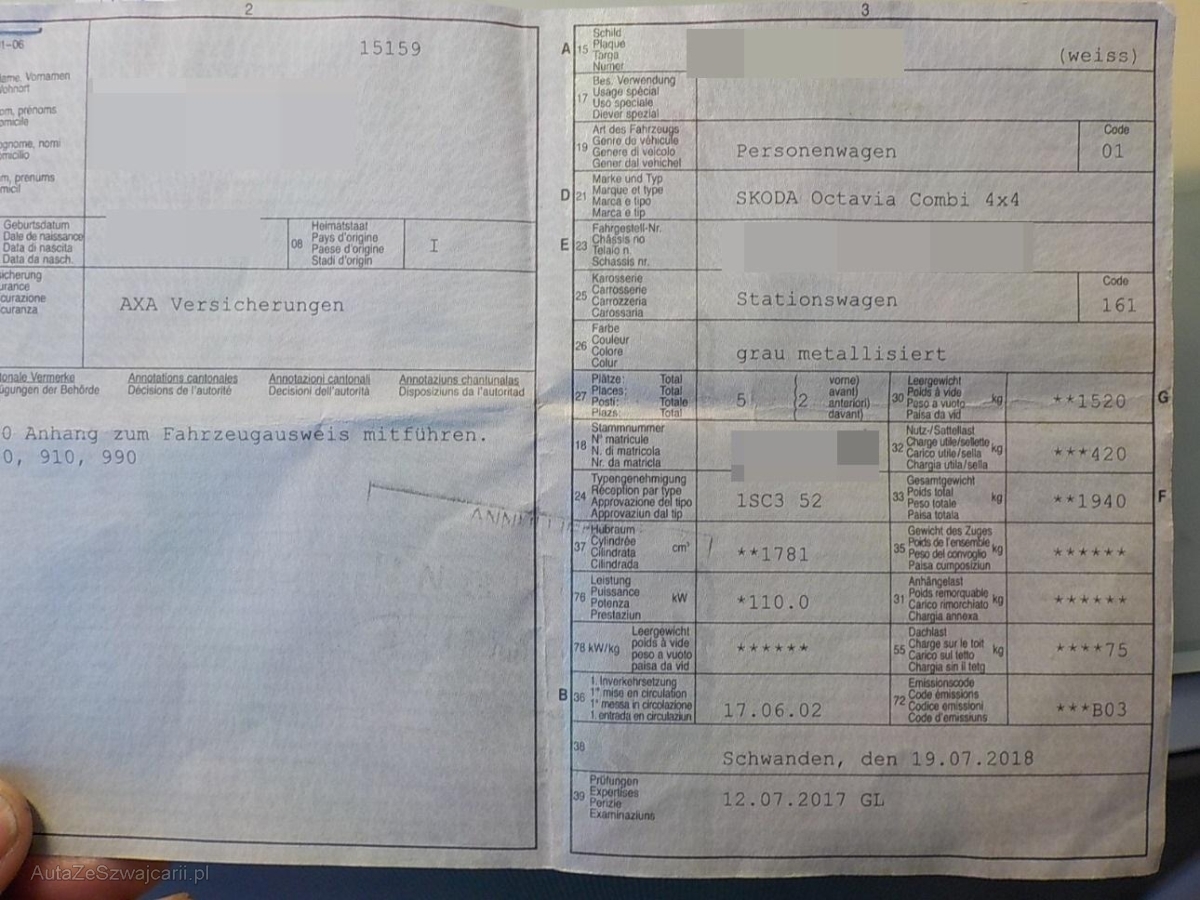 2
1-06
15159
ame, Vornamen
Vohnort
om, prénoms
omicile
ognome, nomi
omicilio
m, prenums
micil
Geburtsdatum
Date de naissance
Data di nascita
Data da nasch.
08
Heimatstaat
Pays d'origine
Paese d'origine
Stadi d'origin
I
sicherung
urance
curazione
curanza
AXA Versicherungen
tonale Vermerke
ügungen der Behörde
Annotations cantonales
Décisions de l'autorité
Annotazioni cantonali
Decisioni dell'autorità
Annotaziuns chantunalas
Disposiziuns da l'autoritad
0 Anhang zum Fahrzeugausweis mitführen.
0, 910, 990
3
A 15
Schild
Plaque
Targa
Numer
(weiss)
17
Bes. Verwendung
Usage spécial
Uso speciale
Diever spezial
19
Art des Fahrzeugs
Genre de véhicule
Genere di veicolo
Gener dal vehichel
Personenwagen
Code
01
D 21
Marke und Typ
Marque et type
Marca e tipo
Marca e tip
SKODA Octavia Combi 4x4
E 23
Fahrgestell-Nr.
Châssis no
Telaio n.
Schassis nr.
25
Karosserie
Carrosserie
Carrozzeria
Carossaria
Stationswagen
Code
161
26
Farbe
Couleur
Colore
Colur
grau metallisiert
27
Plätze: Total
Places: Total
Posti: Totale
Plazs: Total
5
2
vorne)
avant)
anteriori)
davant)
30
Leergewicht
Poids à vide
Peso a vuoto
Paisa da vid
kg
**1520
G
18
Stammnummer
N° matricule
N. di matricola
Nr. da matricla
32
Nutz-/Sattellast
Charge utile/sellette
Carico utile/sella
Chargia utila/sella
kg
***420
24
Typengenehmigung
Réception par type
Approvazione del tipo
Approvaziun dal tip
1SC3 52
33
Gesamtgewicht
Poids total
Peso totale
Paisa totala
kg
**1940
F
37
Hubraum
Cylindrée
Cilindrata
Cilindrada
cm³
**1781
35
Gewicht des Zuges
Poids de l'ensemble
Peso del convoglio
Paisa cumposiziun
kg
******
76
Leistung
Puissance
Potenza
Prestaziun
kW
*110.0
31
Anhängelast
Poids remorquable
Carico rimorchiato
Chargia annexa
kg
******
78 kW/kg
Leergewicht
poids à vide
peso a vuoto
paisa da vid
******
55
Dachlast
Charge sur le toit
Carico sul tetto
Chargia sin il tetg
kg
****75
B 36
1. Inverkehrsetzung
1re mise en circulation
1a messa in circolazione
1. entrada en circulaziun
17.06.02
72
Emissionscode
Code émissions
Codice emissioni
Code d'emissiuns
***B03
38
Schwanden, den 19.07.2018
39
Prüfungen
Expertises
Perizie
Examinaziuns
12.07.2017 GL
AutaZeSzwajcarii.pl